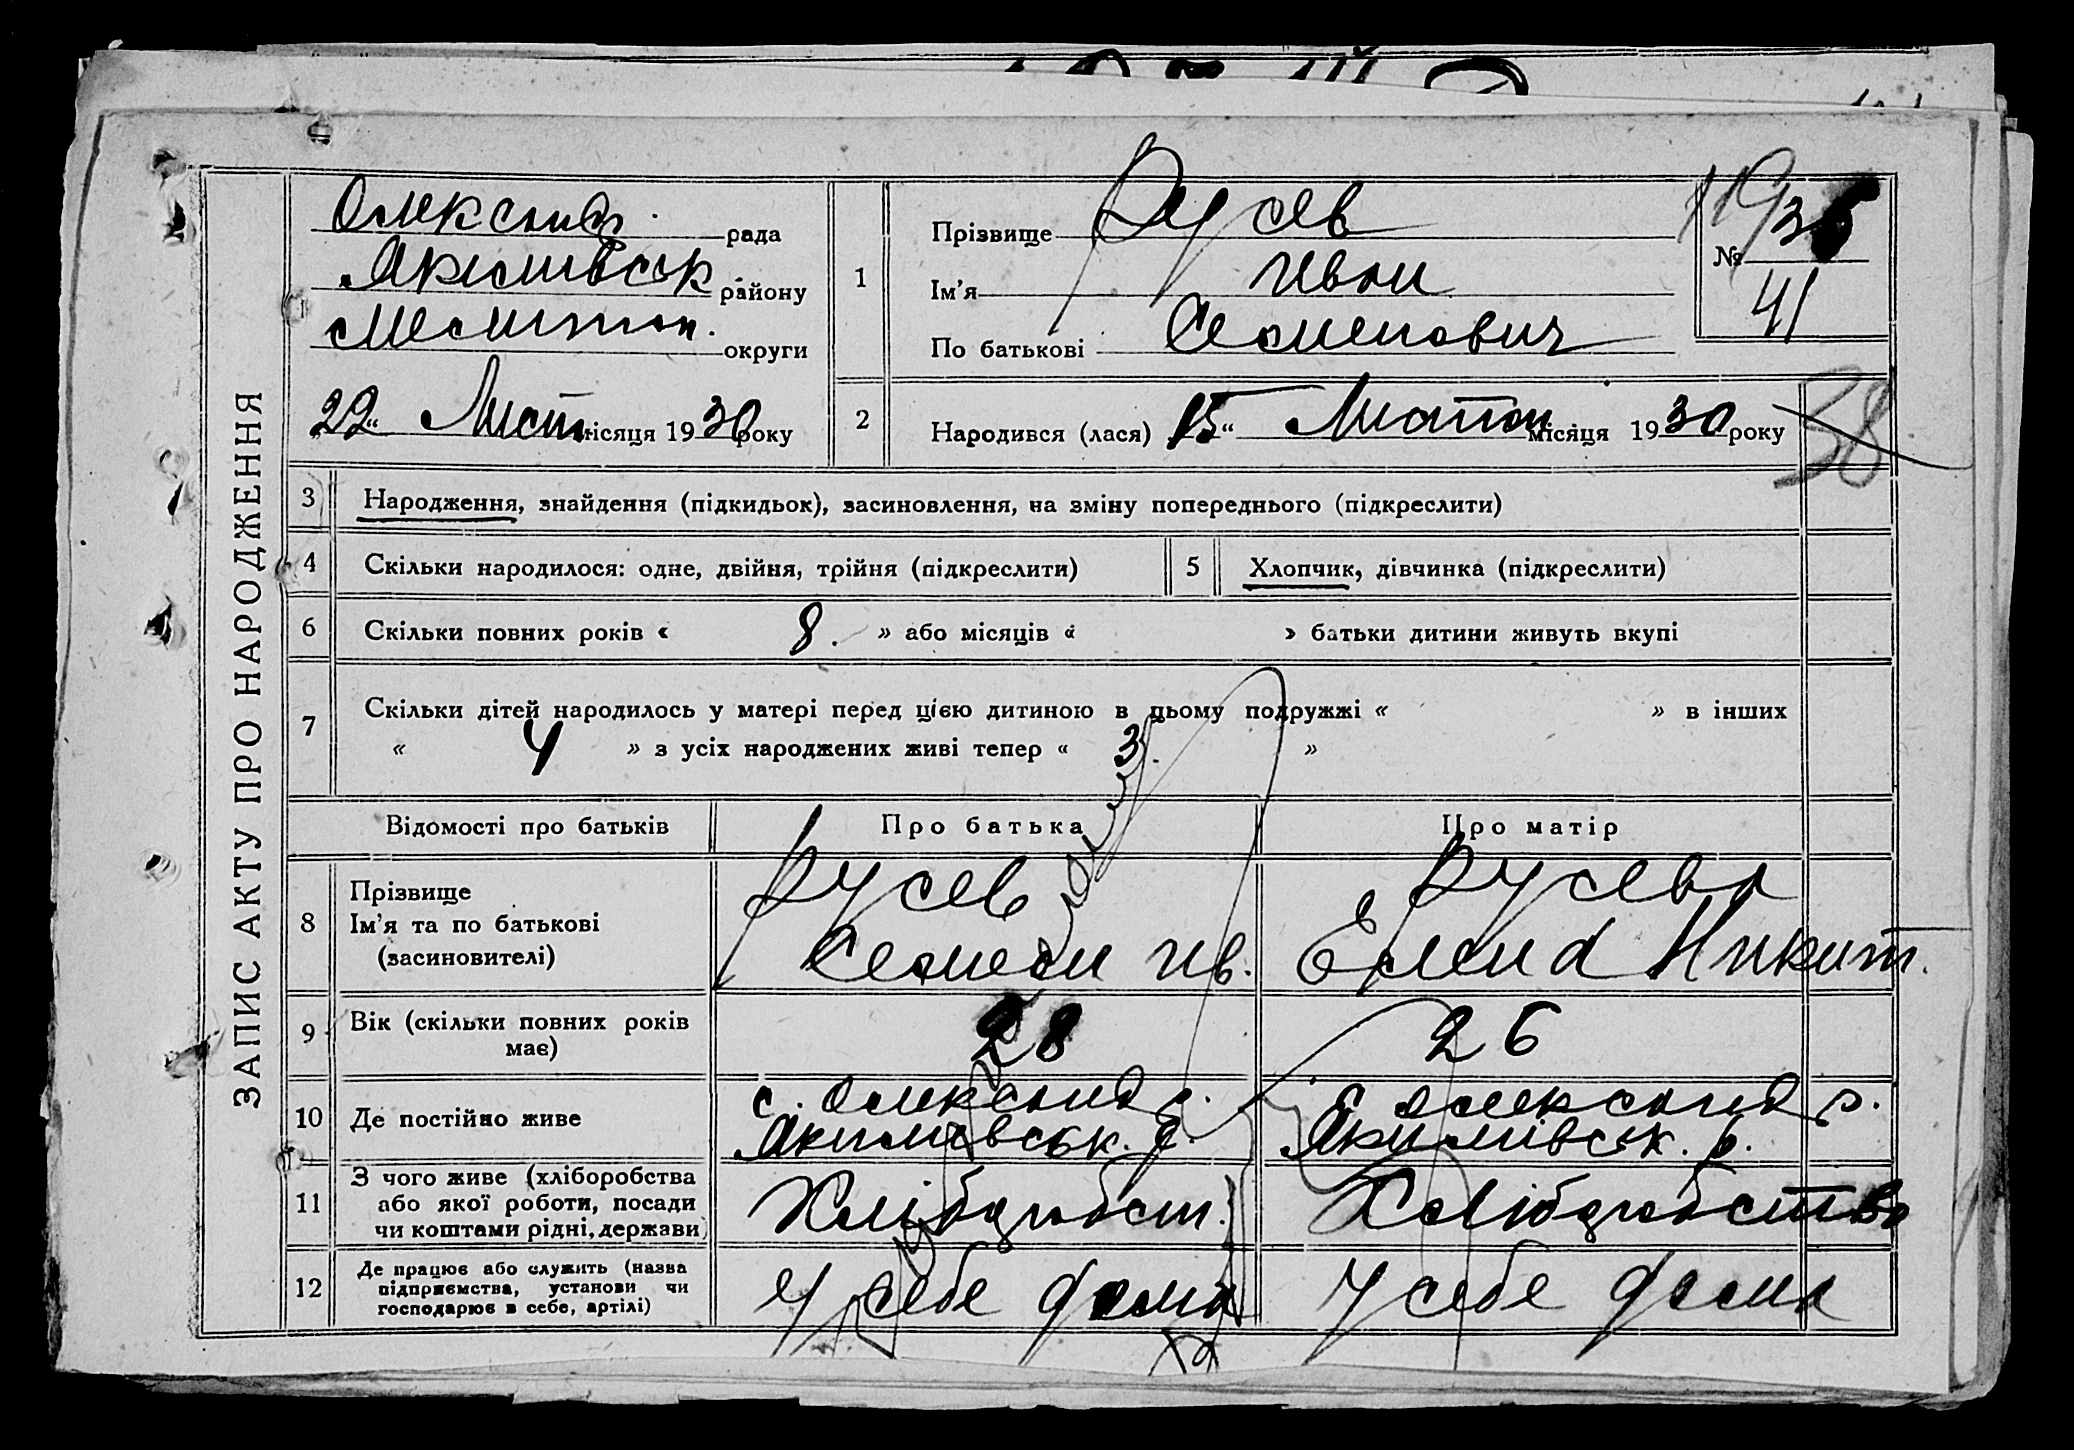 ЗАПИС АКТУ ПРО НАРОДЖЕННЯ
Олександ. рада
Якимівськ району
Мелитоп. округи
22 " Лист місяця 1930 року
1
Прізвище Русев
Ім'я Иван
По батькові Семенович
№ 35
41
38
2
Народився (лася) 15 " Листоп місяця 1930 року
3 Народження, знайдення (підкидьок), засиновлення, на зміну попереднього (підкреслити)
4 Скільки народилося: одне, двійня, трійня (підкреслити) 5 Хлопчик, дівчинка (підкреслити)
6 Скільки повних років « 8. » або місяців « » батьки дитини живуть вкупі
7 Скільки дітей народилось у матері перед цією дитиною в цьому подружжі « » в інших
« 4 » з усіх народжених живі тепер « 3. »
Відомості про батьків Про батька Про матір
8 Прізвище
Ім'я та по батькові
(засиновителі)
Русев
Семен Ив.
Русева
Елена Никит.
9 Вік (скільки повних років
має)
28 26
10 Де постійно живе
с. Олександ
Якимівськ. р.
с. Олександ
Якимівськ. р.
11 З чого живе (хліборобства
або якої роботи, посади
чи коштами рідні, держави)
Хлібороб­ст. Хліборобство
12 Де працює або служить (назва
підприємства, установи чи
господарює в себе, артілі)
У себе дома У себе дома